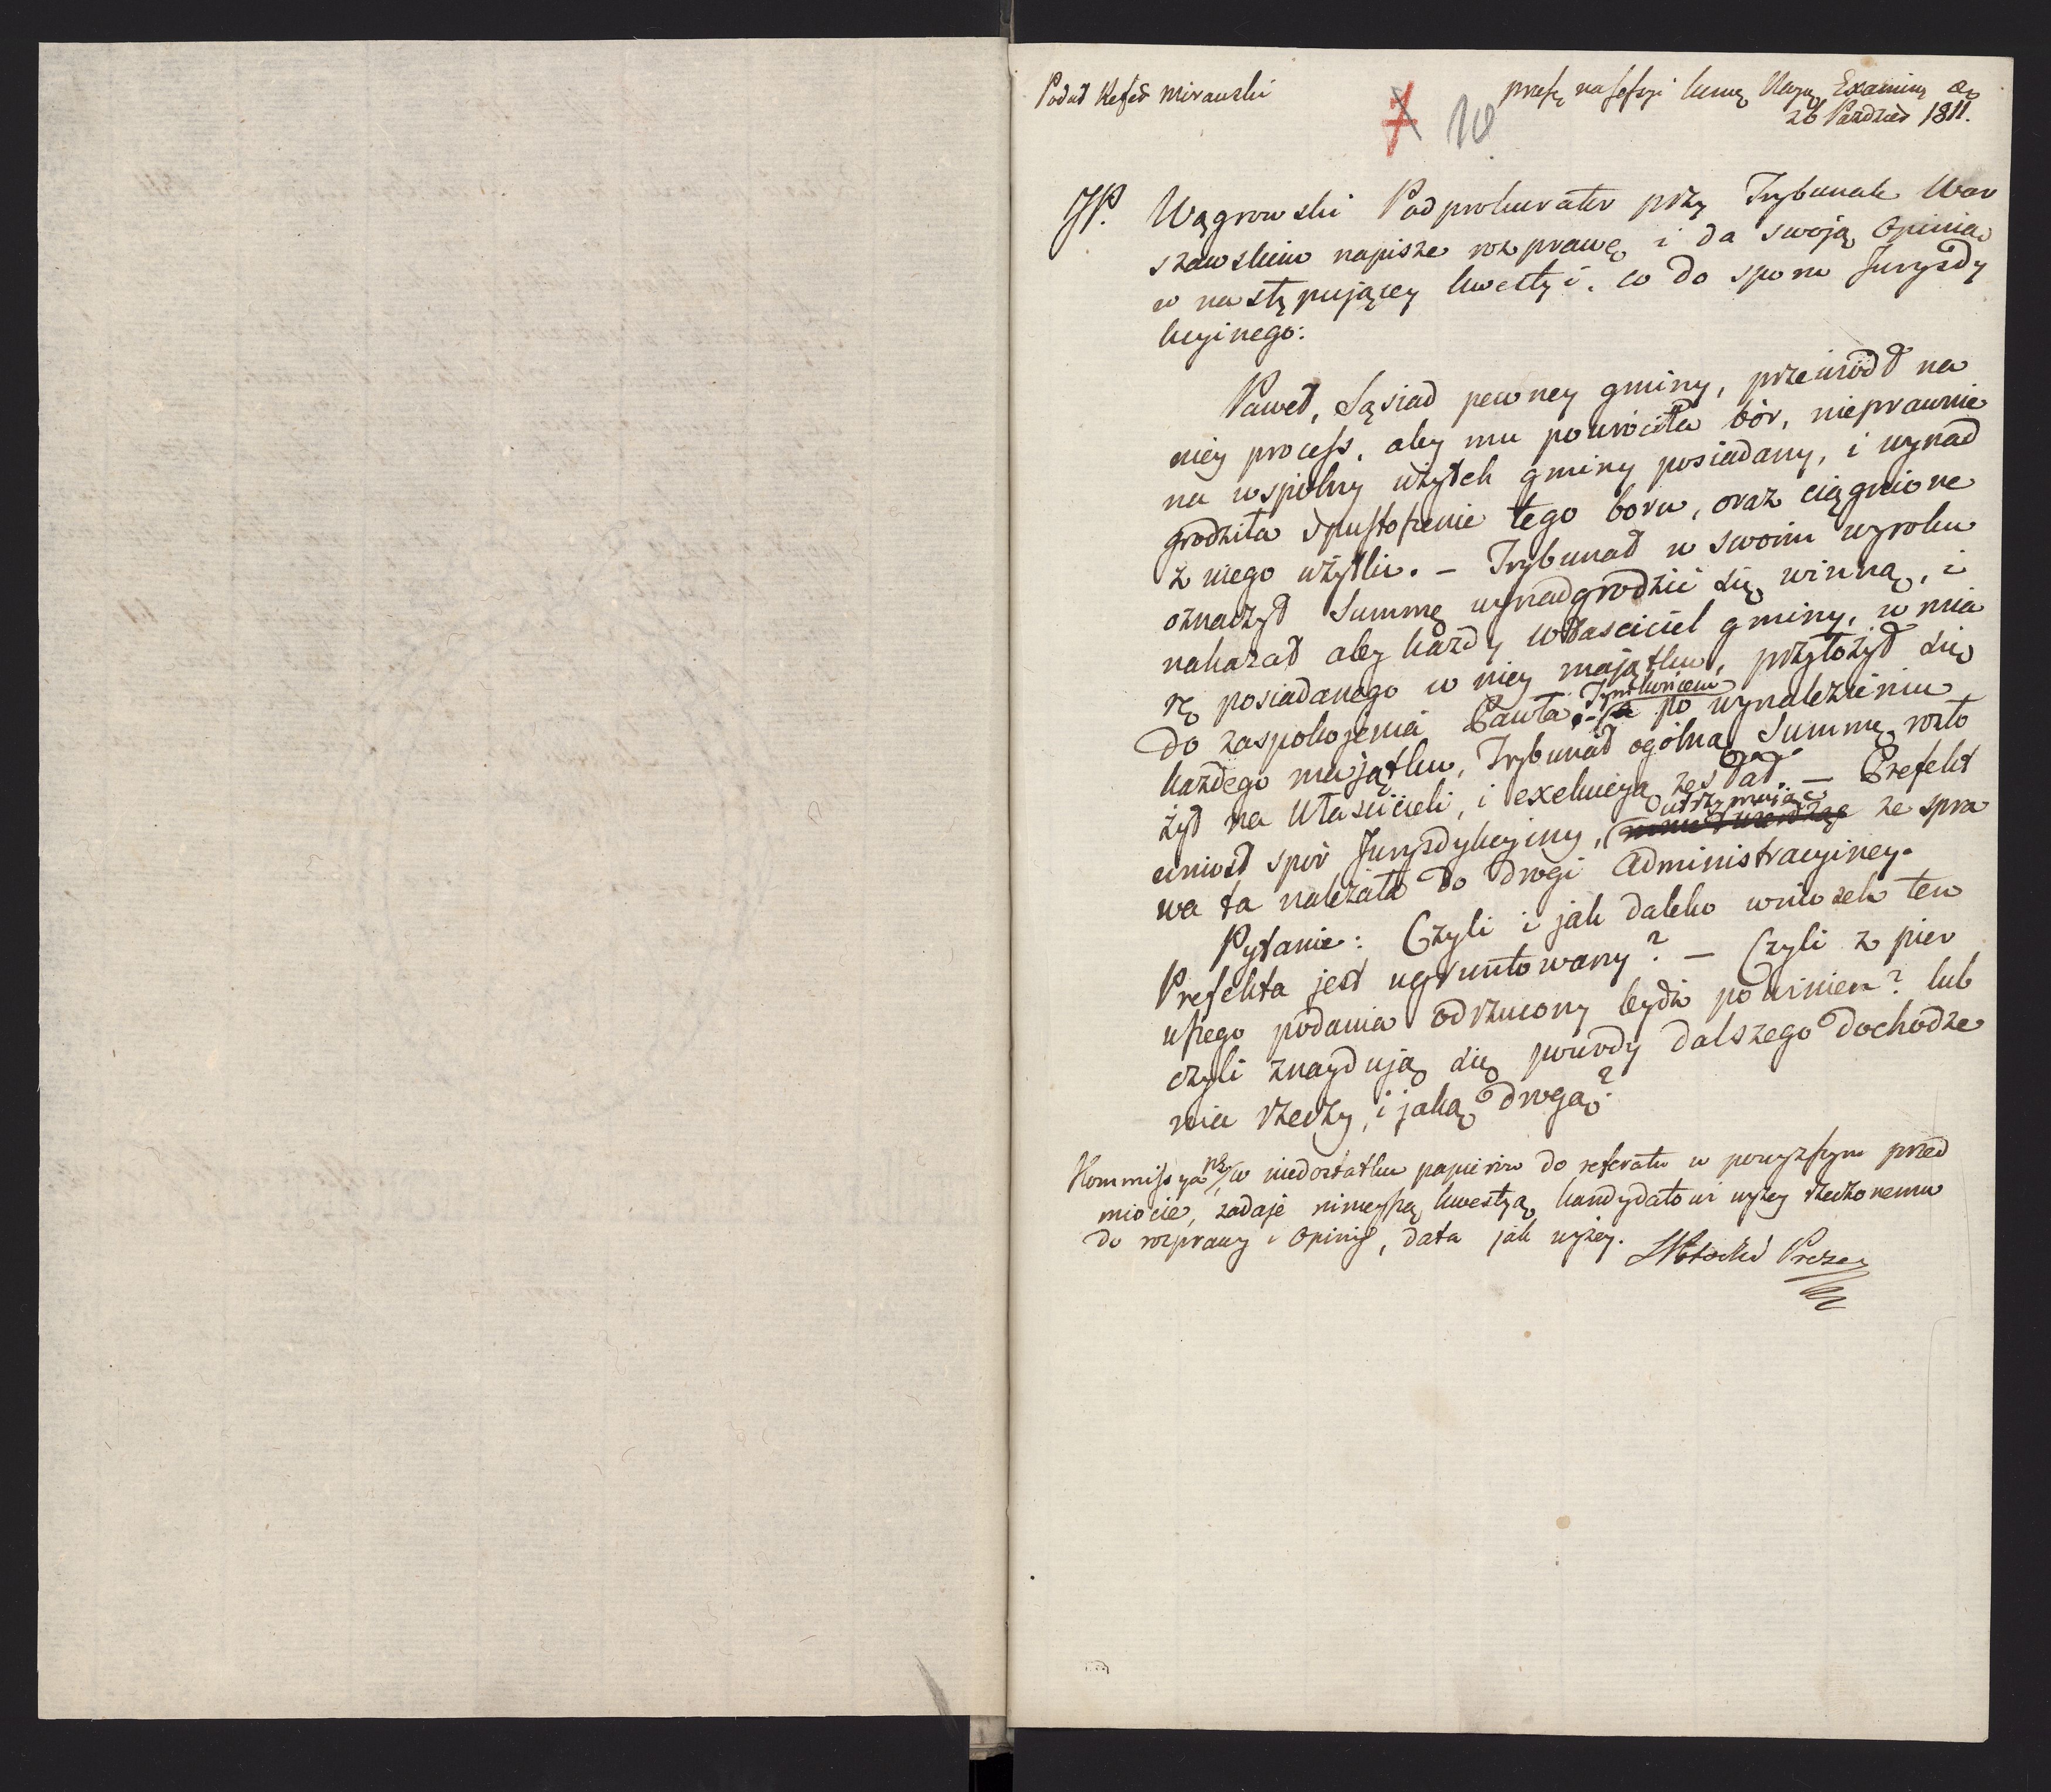 Podał Refer Mirawski
26 Paździer 1811.
7 10
JP. Wągrowski Podprokurator przy Trybunale War
szawskim napisze rozprawę i da swoją Opinią
w następującey kwestyi. co do sporu Juryzdy
kcyinego:
Paweł, Sąsiad pewney gminy, przewiódł na
niey process, aby mu powrociła bór, nieprawnie
na wspólny użytek gminy posiadany, i wynad
grodziła spustoszenie tego boru, oraz ciągnione
z niego użytki. – Trybunał w swoim wyroku
oznaczył Summę wynadgrodzić się winną, i
nakazał aby każdy własciciel gminy, w mia
rę posiadanego w niey majątku, przyłożył się
do zaspokojenia Pawła. – Tym końcem po wynalezieniu
każdego majątku, Trybunał ogólną Summę rozło
żył na Włascicieli, i exekucyą zesłał. – Prefekt
wniosł spór Juryzdykcyiny, utrzymując że spra
wa ta należała do drogi Administracyiney.
Pytanie: Czyli i jak daleko wniosek ten
Prefekta jest ugruntowany? – Czyli z pier
wszego podania odrzucony bydź powinien? lub
czyli znayduią się powody dalszego dochodze
nia rzeczy, i jaką drogą?
Kommissya w niedostatku papierów do referatu w powyższym przed
miocie, zadaje ninieyszą kwestyą kandydatowi wyżey rzeczonemu
do rozprawy i Opinii, data jak wyżey.
Potocki Prezes